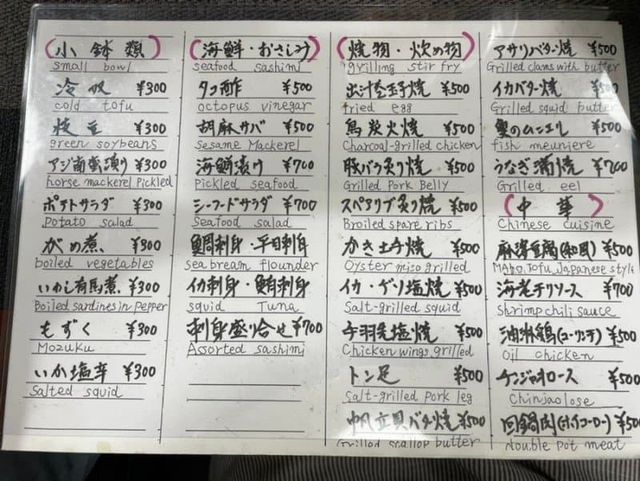 (小鉢類)
small bowl
冷奴 ¥300
cold tofu
枝豆 ¥300
green soybeans
アジ南蛮漬け ¥300
horse mackerel pickled
ポテトサラダ ¥300
Potato salad
がめ煮 ¥300
boiled vegetables
いわし有馬煮 ¥300
Boiled sardines in pepper
もずく ¥300
Mozuku
いか塩辛 ¥300
Salted squid
(海鮮・おさしみ)
seafood sashimi
タコ酢 ¥500
octopus vinegar
胡麻サバ ¥500
Sesame Mackerel
海鮮漬け ¥700
Pickled seafood
シーフードサラダ ¥700
Seafood salad
鯛刺身・平目刺身
sea bream flounder
イカ刺身・鮪刺身
squid Tuna
刺身盛り合せ ¥700
Assorted sashimi
(焼物・炒め物)
grilling stir fry
出汁玉子焼 ¥500
fried egg
鳥炭火焼 ¥500
Charcoal-grilled chicken
豚バラ炙り焼 ¥500
Grilled Pork Belly
スペアリブ炙り焼 ¥500
Broiled spare ribs
かき土手焼 ¥500
Oyster miso grilled
イカ・ゲソ塩焼 ¥500
Salt-grilled squid
手羽先塩焼 ¥500
Chicken wings grilled
トン足 ¥500
Salt-grilled Pork leg
帆立貝バター焼 ¥500
Grilled scallop butter
アサリバター焼 ¥500
Grilled clams with butter
イカバター焼 ¥500
Grilled squid butter
魚のムニエル ¥500
fish meuniere
うなぎ蒲焼 ¥700
Grilled eel
(中華)
Chinese cuisine
麻婆豆腐(和風) ¥500
Mabo, Tofu, Japanese style
海老チリソース ¥700
Shrimp chili sauce
油淋鶏(ユーリンチ) ¥500
Oil chicken
チンジャオロース ¥500
Chinjaolose
回鍋肉(ホイコーロー) ¥500
Double pot meat